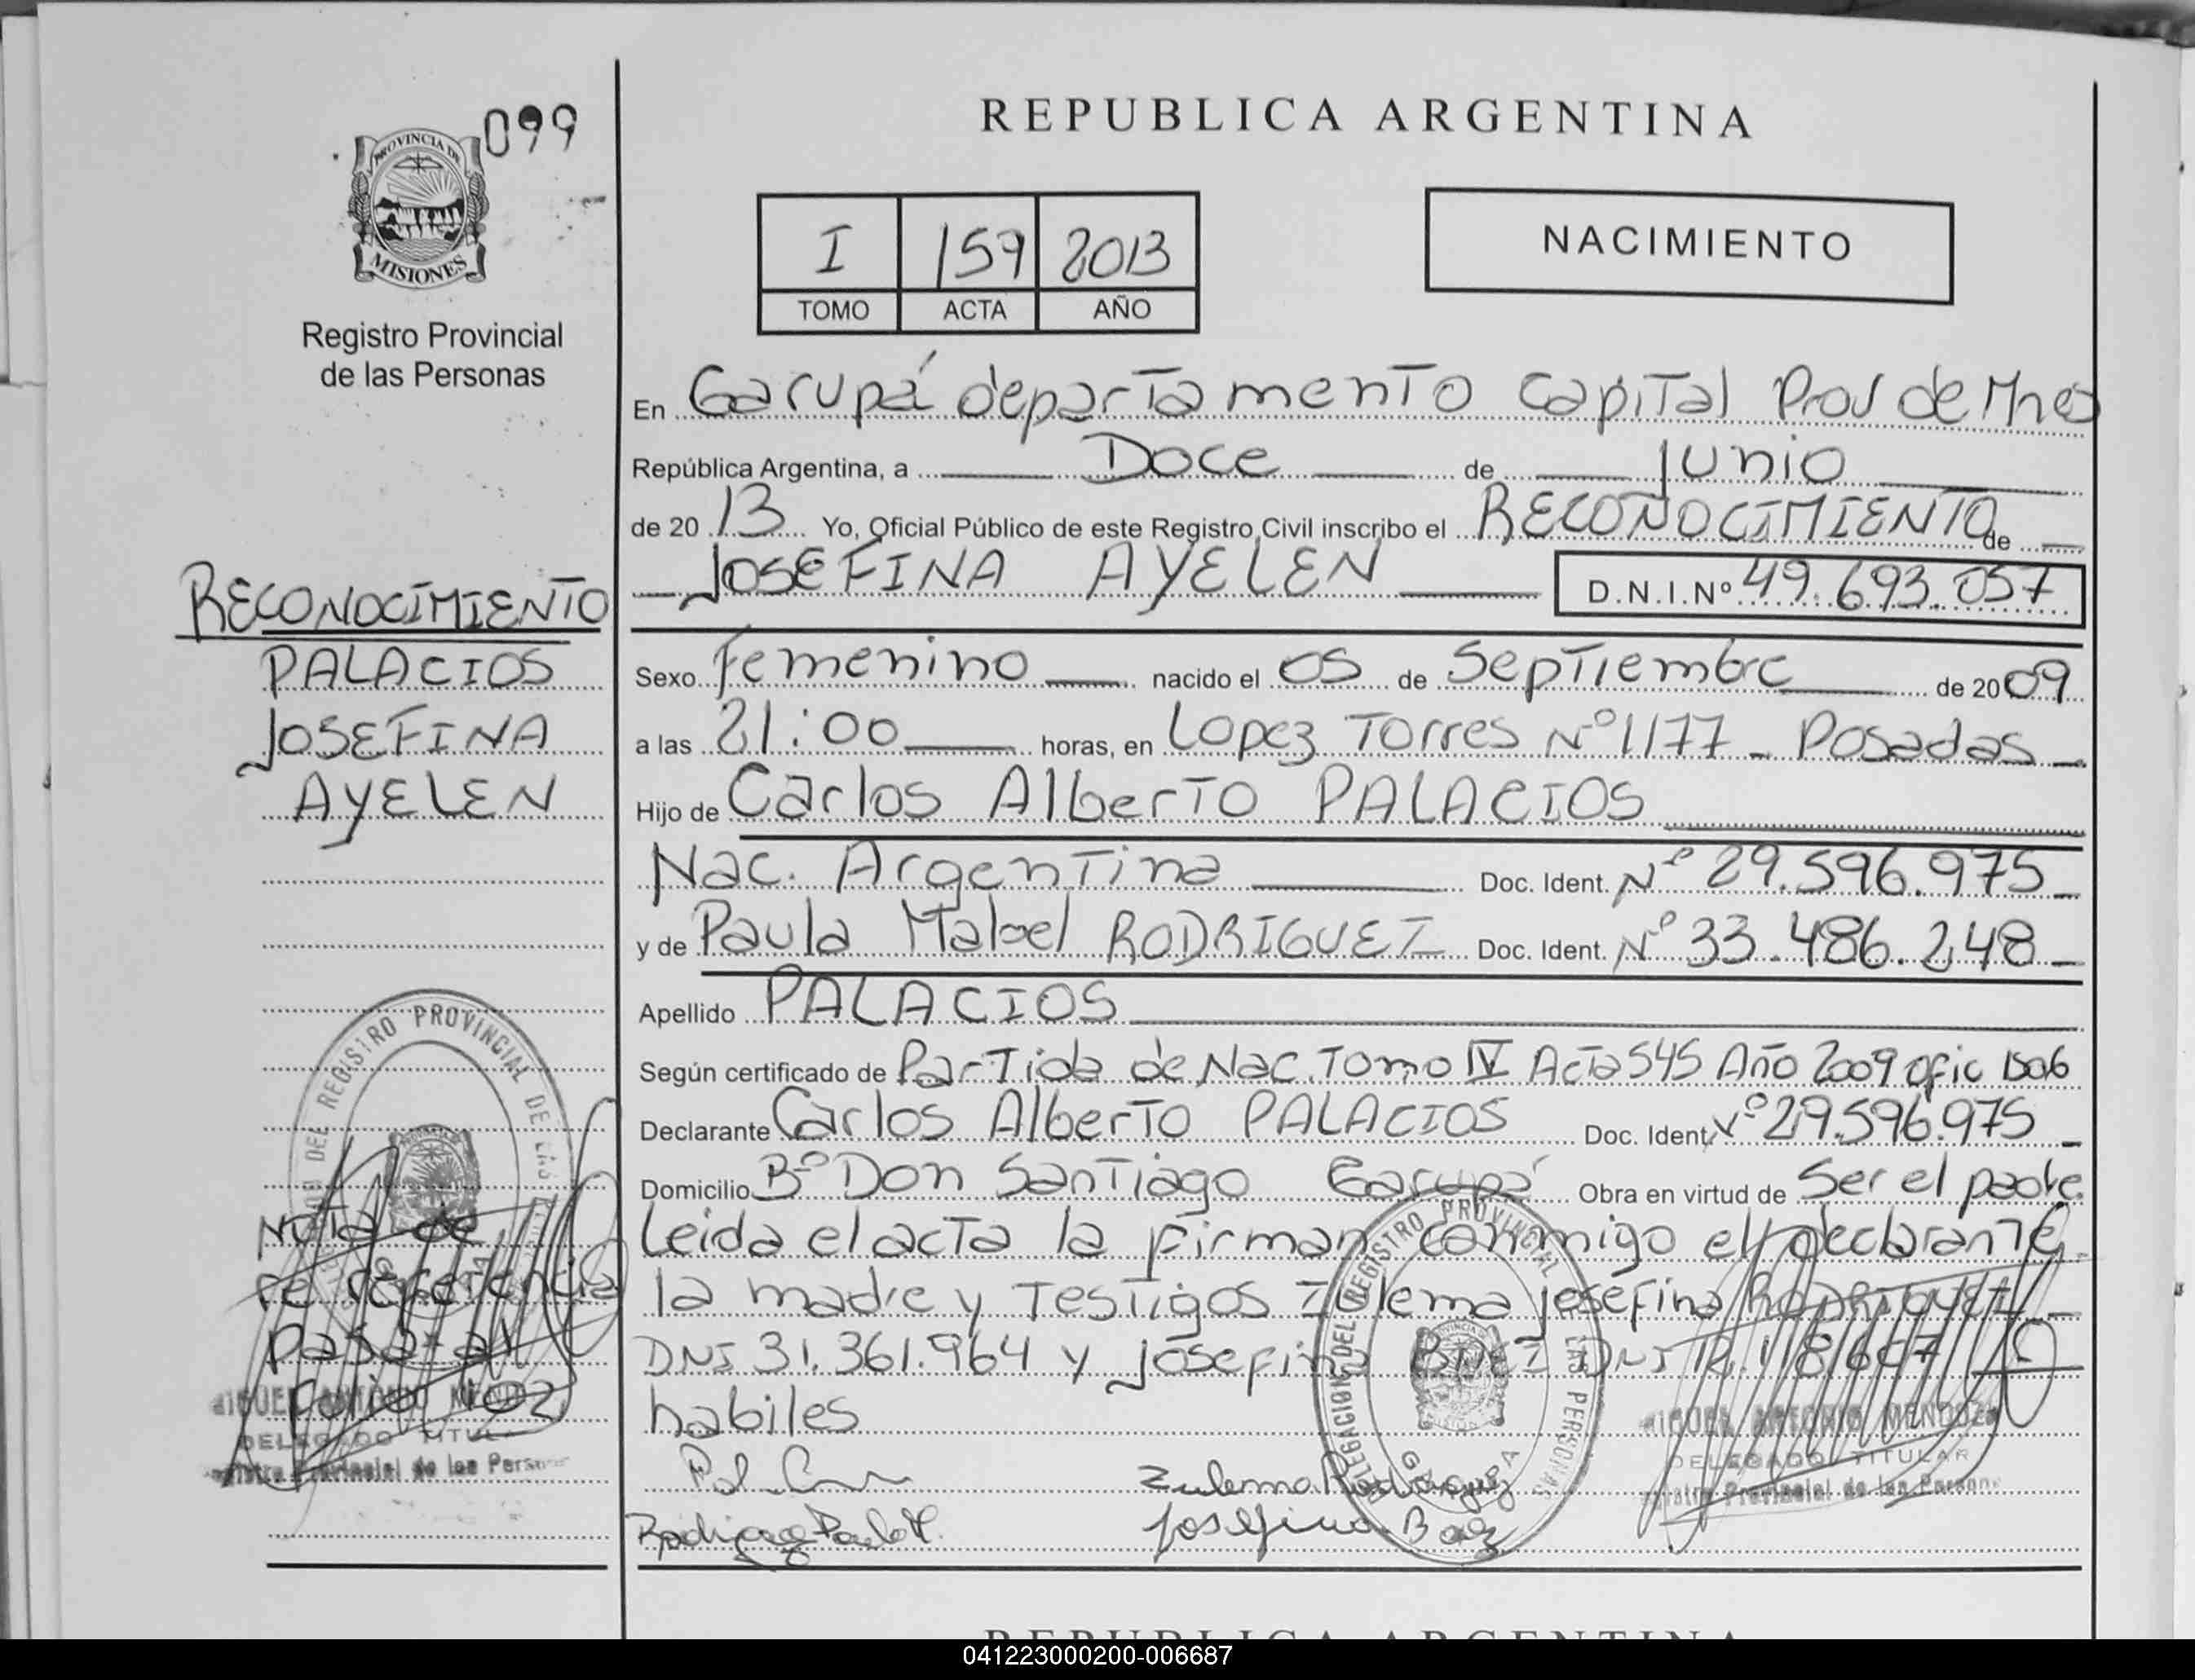 099
PROVINCIA DE
MISIONES
Registro Provincial
de las Personas
RECONOCIMIENTO
PALACIOS
JOSEFINA
AYELEN
DEL REGISTRO PROVINCIAL DE LAS
Nota de
referencia
pasa al
folio 102
MIGUEL ANTONIO MENDOZA
DELEGADO TITULAR
Registro Provincial de las Personas
REPUBLICA ARGENTINA
I 159 2013
TOMO ACTA AÑO
NACIMIENTO
En Garupá departamento Capital Prov de Mnes
República Argentina, a Doce de junio
de 2013 Yo, Oficial Público de este Registro Civil inscribo el RECONOCIMIENTO de
JOSEFINA AYELEN D.N.I.Nº 49.693.057
Sexo Femenino nacido el 05 de Septiembre de 2009
a las 21:00 horas, en Lopez Torres Nº 1177 - Posadas
Hijo de Carlos Alberto PALACIOS
Nac. Argentina Doc. Ident. Nº 29.596.975
y de Paula Mabel RODRIGUEZ Doc. Ident. Nº 33.486.248
Apellido PALACIOS
Según certificado de Partida de Nac. Tomo IV Acta 545 Año 2009 ofic
Declarante Carlos Alberto PALACIOS Doc. Ident. Nº 29.596.975
Domicilio Bº Don Santiago Garupá Obra en virtud de Ser el padre
Leida el acta la firman conmigo el declarante
la madre y Testigos Zulema josefina RODRIGUEZ
DNI 31.361.964 y josefina BAEZ DNI
habiles
Zulema Rodriguez
Rodriguez Paula M.
Josefina Baez
DELEGACION DEL REGISTRO PROVINCIAL DE LAS PERSONAS
GARUPA
MIGUEL ANTONIO MENDOZA
DELEGADO TITULAR
Registro Provincial de las Personas
REPUBLICA ARGENTINA
041223000200-006687